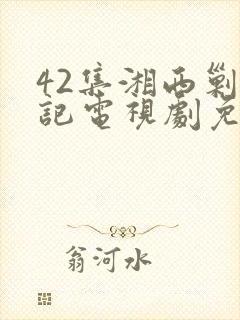 42集湘西剿
記電視劇免
翁河水